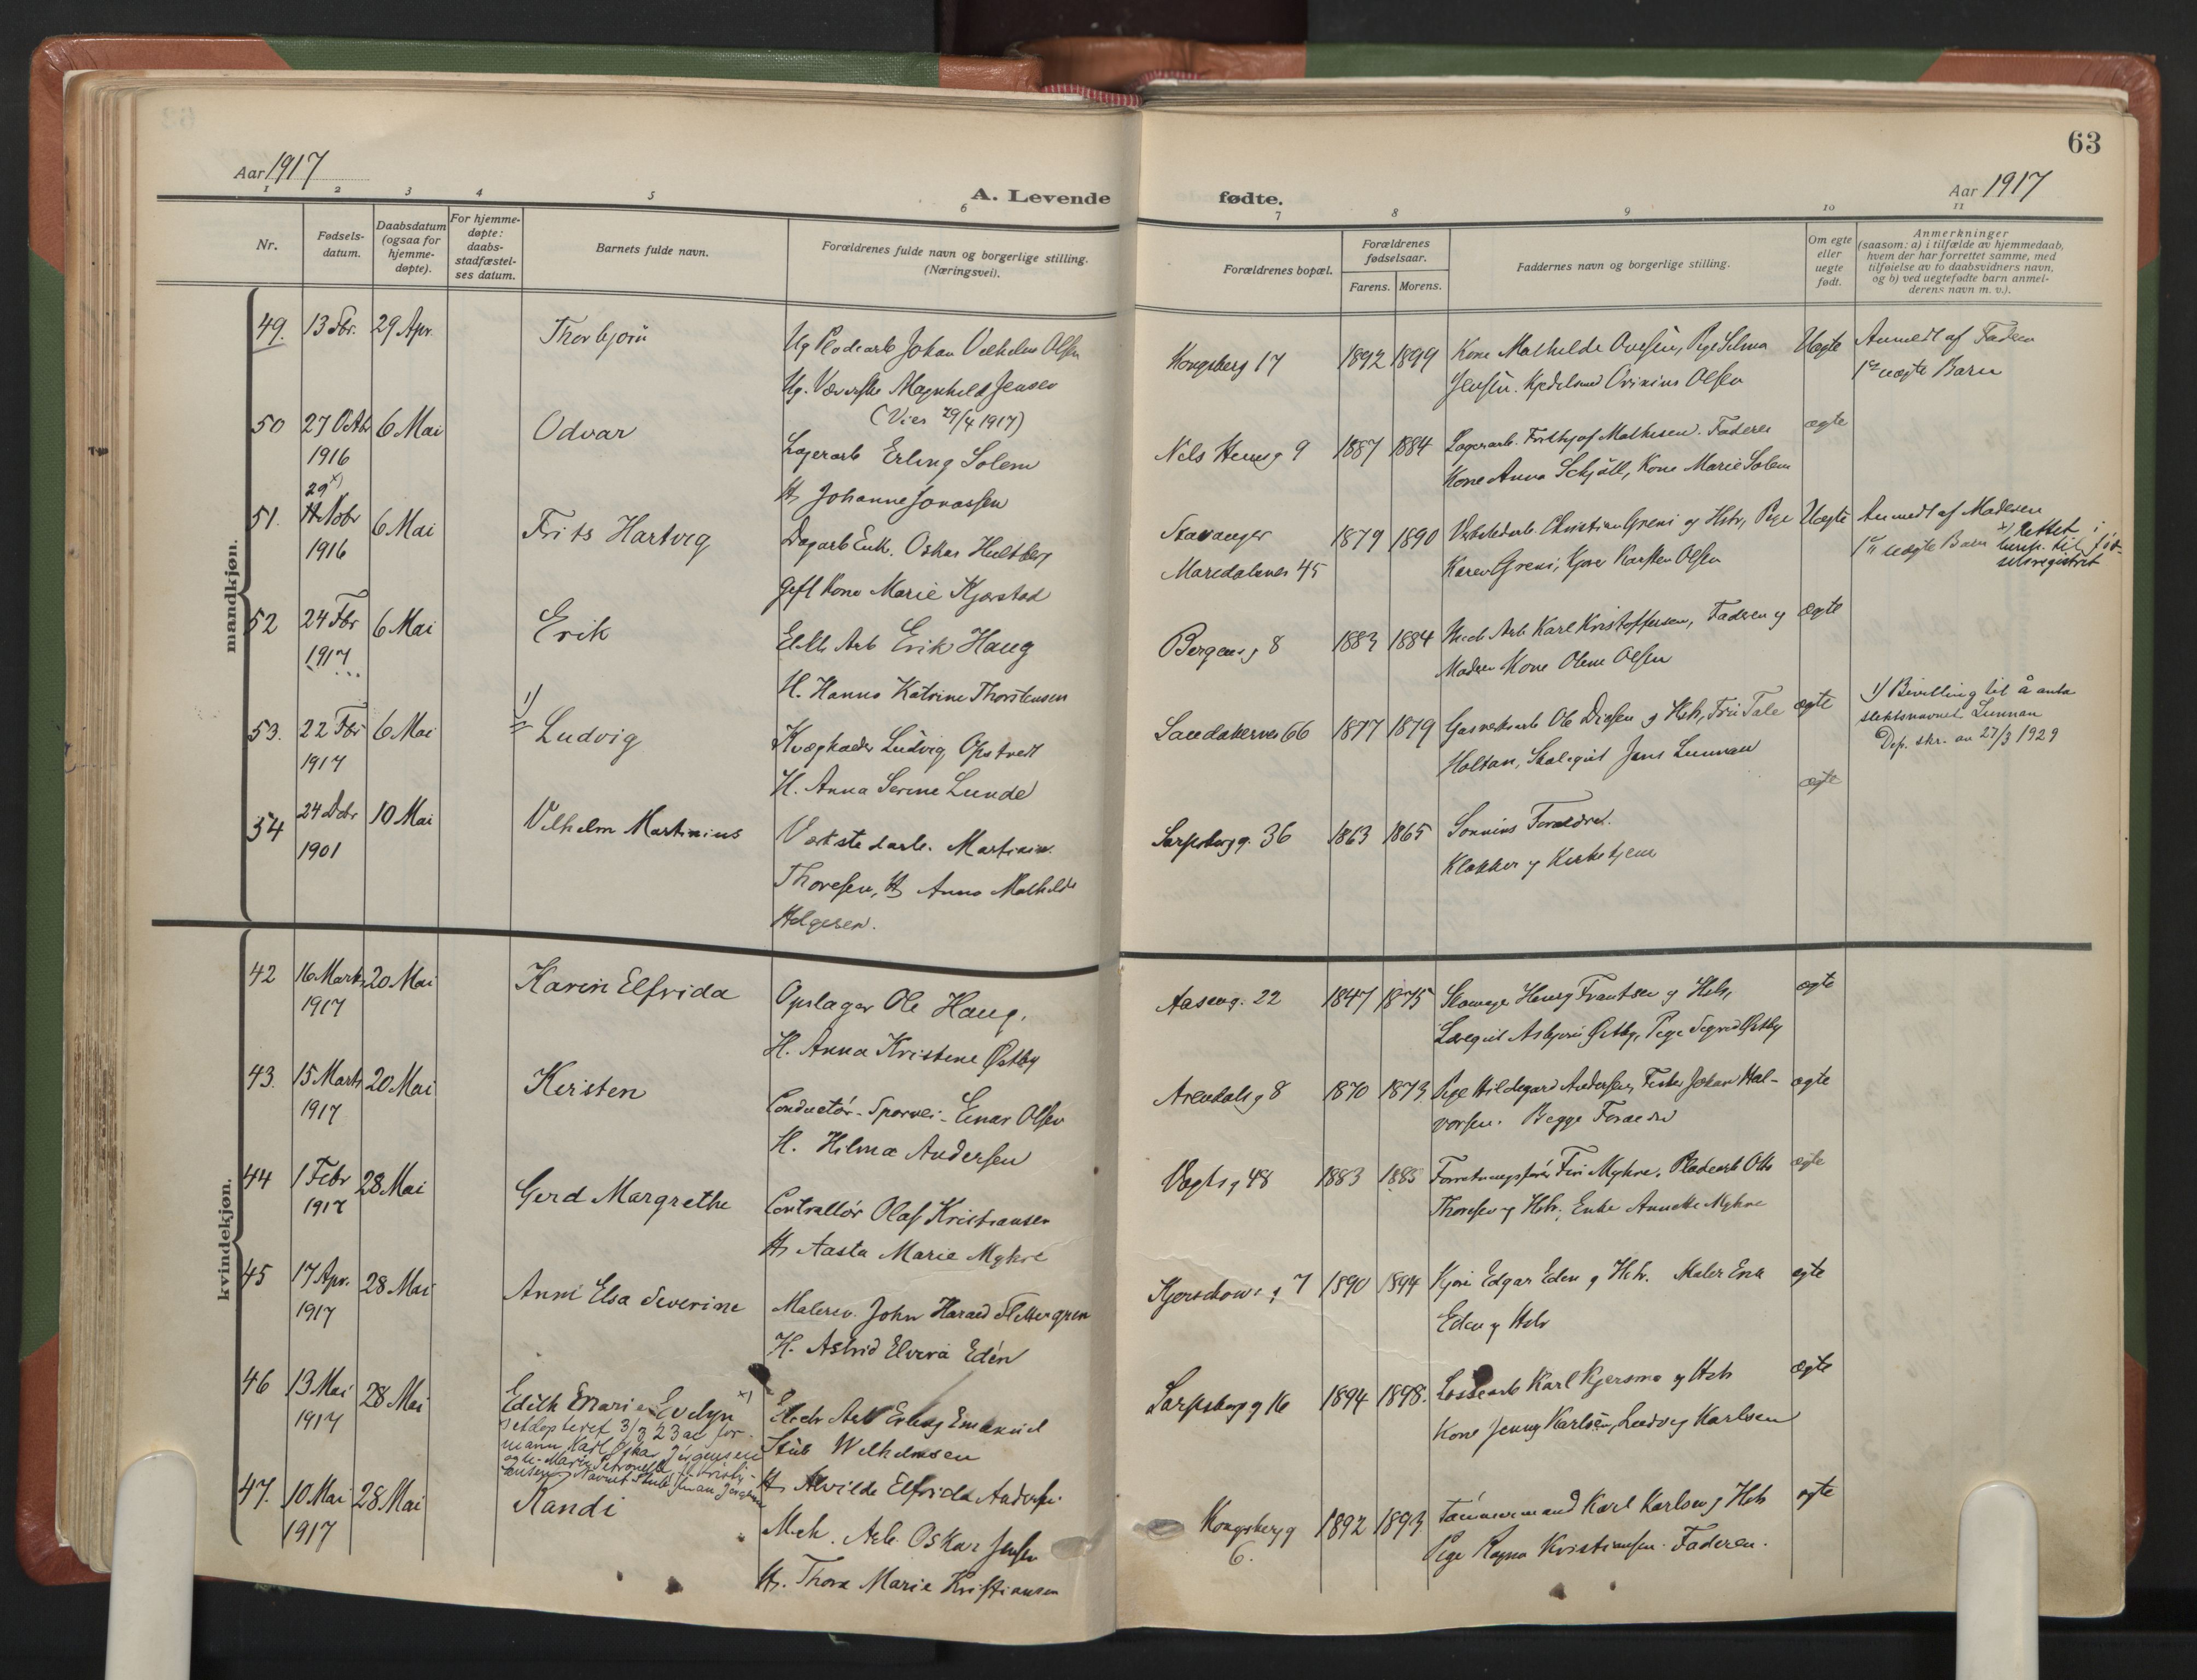 63
Aar 1917
A. Levende
fødte.
Aar 1917
1 2 3 4 5 6 7 8 9 10 11
Nr.
Fødsels-
datum.
Daabsdatum
(ogsaa for
hjemme-
døpte).
For hjemme-
døpte:
daabs-
stadfæstel-
ses datum.
Barnets fulde navn.
Forældrenes fulde navn og borgerlige stilling.
(Næringsvei).
Forældrenes bopæl.
Forældrenes
fødselsaar.
Farens. Morens.
Faddernes navn og borgerlige stilling.
Om egte
eller
uegte
født.
Anmerkninger
(saasom: a) i tilfælde av hjemmedaab,
hvem der har forrettet samme, med
tilføielse av to daabsvidners navn,
og b) ved uegtefødte barn anmel-
derens navn m. v.).
mandkjøn.
49. 13 Fbr. 29 Apr. Thorbjørn
Ug Pladearb Johan Vilhelm Olsen
Ug. Væverske Magnhild Jensen
(Viet 29/4 1917)
Kongsberg 17 1892 1899
Kone Mathilde Ovesen, Pige Selma
Jensen. Kjedelsmed Olsen
Uegte
Anmeldt af Faderen
1ste uegte Barn
50 27 Octbr 6 Mai Odvar
1916
Lagerarb Erling Solem
H. Johanne Jonassen
Nels Hensg 9 1887 1884
Lagerarb. Mathisen. Faderen
Kone Anna Schjøll, Kone Marie Solem
ægte
51. 29 x) Nobr 6 Mai Frits Hartvig
1916
Dagarb Enk. Oskar Hultberg
gift Kone Marie Kjærstad
Stavanger 1879 1890
Maridalsvei 45
Verkstedarb. Christian Greni og Hstr, Pige
Karen Greni, Karsten Olsen
Uegte
Anmeldt af Moderen
1ste uegte Barn
x) Rettet i
hensh. til fød-
selsregistret
52 24 Fbr 6 Mai Erik
1917
Elektr Arb Erik Haug
H. Hanna Katrine Thorstensen
Bergensg 8 1883 1884
Arb. Karl Kristoffersen, Faderen og
Moderen Kone Olene Olsen
ægte
53. 22 Fbr 6 Mai 1) Ludvig
1917
Ludvig Opstvedt
H. Anna Serine Lunde
Sandakerveien 66 1877 1879
Gasverksarb Ole Diesen og Hstr, Frü Tale
Holtan, Jens Lunnan
ægte
1) Bevilling til å anta
slektsnavnet Lunnan
Dep. skr. av 27/3 1929
54 24 Debr 10 Mai Vilhelm Martinius
1901
Værkstedarb. Martinius
Thoresen, H Anna Mathilde
Helgesen.
Sarpsborgg. 36 1863 1865
Sønnens Forældre.
Klokker og Kirketjener
ægte
kvindekjøn.
42 16 Marts 20 Mai Karin Elfrida
1917
Opslager Ole Haug.
H. Anna Kristine Østby
Aaseng. 22 1847 1875
Henry Frantsen og Hstr,
Asbjørn Østby, Pige Sigrid Østby
ægte
43. 15 Marts 20 Mai Kirsten
1917
Conductør - Sporvei - Einar Olsen
H. Hilma Andersen
Arendalsg 8 1870 1873
Pige Hildegard Andersen, Johan Hal-
vorsen. Begge Forældre
ægte
44 1 Febr 28 Mai Gerd Margrethe
1917
Contrallør Olaf Kristiansen
H. Aasta Marie Mykre
Vogtsg 48 1883 1885
Forretningsfører Mykre, Pladearb Otto
Thoresen og Hstr, Enke Annette Mykre
ægte
45 17 Apr. 28 Mai Anni Elsa Severine
1917
Malersv. John Harald Flettergren
H. Astrid Elvira Edén
Kjerschowsg 7 1890 1894
Edgar Eden og Hstr. Maler Erik
Eden og Hstr
egte
46 13 Mai 28 Mai Edith Marie Evelyn x)
1917
x) adoptert 3/3 23 av for-
mann Karl Oskar Jørgensen
og h. Marie Petronelle f. Kristi-
ansen.
Arb Erling Emanuel
Stub Wilhelmsen
H. Alvilde Elfrida Andersen
Sarpsborgg 16 1894 1898.
Karl Kjersmo og Hstr
Kone Jenny Karlsen, Ludvig Karlsen
ægte
47. 10 Mai 28 Mai Randi
1917
Mek. Arb. Oskar Jensen
H. Thora Marie Kristiansen
Kongsbergg 1892 1893
6.
Tømmermand Karl Karlsen og Hstr
Pige Ragna Kristiansen. Faderen.
egte